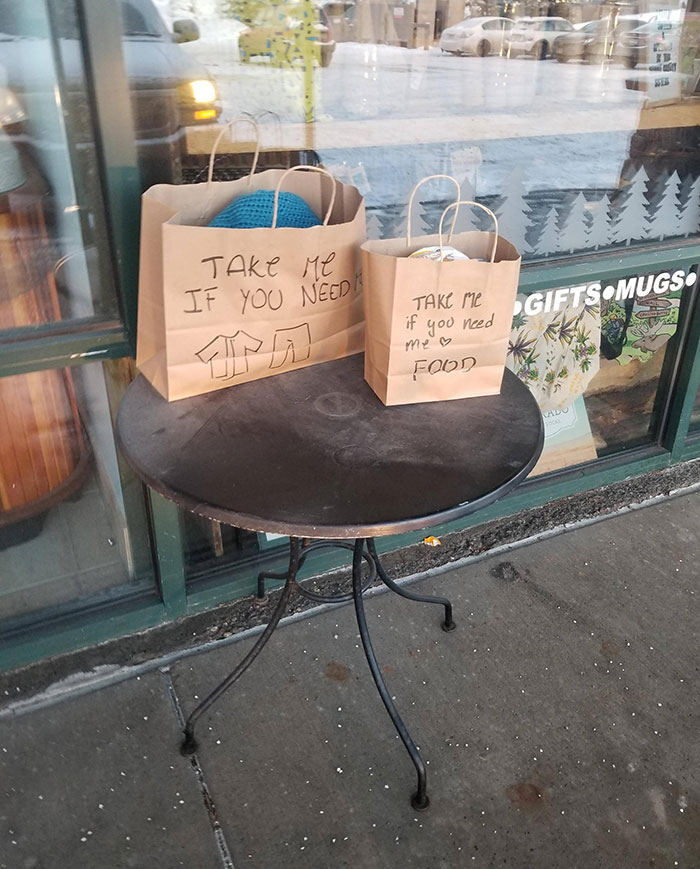 TAKE ME
IF YOU NEED
TAKE ME
if you need
me ♡
FOOD
•GIFTS•MUGS•